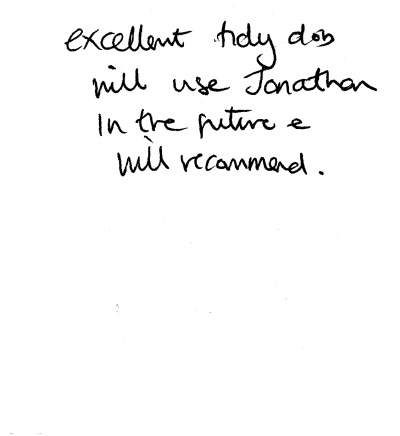 excellent tidy job
will use Jonathan
In the future &
will recommend.